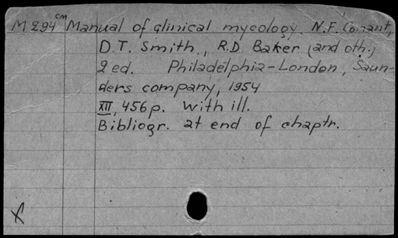 M 294 cm Manual of clinical mycology. N.F. Conant,
D.T. Smith, R.D. Baker (and oth.)
2 ed. Philadelphia-London, Saun-
ders company, 1954
XII, 456 p. With ill.
Bibliogr. at end of chaptr.